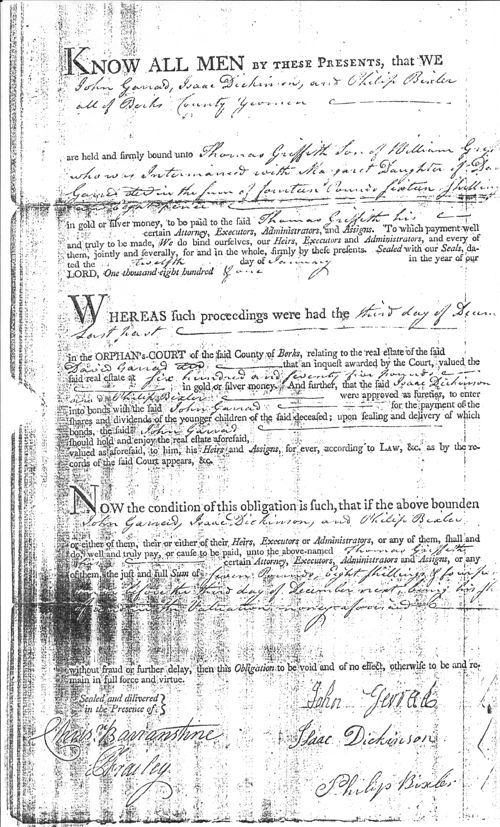 KNOW ALL MEN BY THESE PRESENTS, that WE
John Garrad, Isaac Dickinson, and Philip Bixler
all of Berks County Yeomen
are held and firmly bound unto Thomas Griffith Son of William
who was Intermarried with Margaret Daughter of
Garrad in the Sum of fourteen Pounds sixteen Shillings
in gold or silver money, to be paid to the said Thomas Griffith his
certain Attorney, Executors, Administrators, and Assigns. To which payment well
and truly to be made, We do bind ourselves, our Heirs, Executors and Administrators, and every of
them, jointly and severally, for and in the whole, firmly by these presents. Sealed with our Seals, da-
ted the twelfth day of January in the year of our
LORD, One thousand eight hundred & one
WHEREAS such proceedings were had the third day of
Last past
in the ORPHAN's-COURT of the said County of Berks, relating to the real estate of the said
David Garrad that an inquest awarded by the Court, valued the
said real estate at Six hundred and Seventy five pounds
in gold or silver money. And further, that the said Isaac Dickinson
and Philip Bixler were approved as sureties, to enter
into bonds with the said John Garrad for the payment of the
shares and dividends of the younger children of the said deceased; upon sealing and delivery of which
bonds, the said John Garrad
should hold and enjoy the real estate aforesaid,
valued as aforesaid, to him, his Heirs and Assigns, for ever, according to LAW, &c. as by the re-
cords of the said Court appears, &c.
NOW the condition of this obligation is such, that if the above bounden
John Garrad, Isaac Dickinson, and Philip Bixler
or either of them, their or either of their Heirs, Executors or Administrators, or any of them, shall and
do well and truly pay, or cause to be paid, unto the above-named Thomas Griffith
certain Attorney, Executors, Administrators and Assigns, or any
of them, the just and full Sum of Seven Pounds, eight Shillings &
before the third day of December next being his
without fraud or further delay, then this Obligation to be void and of no effect, otherwise to be and re-
main in full force and virtue.
Sealed and delivered
in the Presence of:
John Gerrad
Isaac Dickinson
Philip Bixler